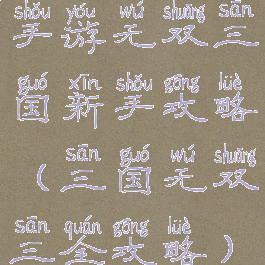 shǒu yóu wú shuāng sān
手游无双三
guó xīn shǒu gōng lüè
国新手攻略
sān guó wú shuāng
（三国无双
sān quán gōng lüè
三全攻略）